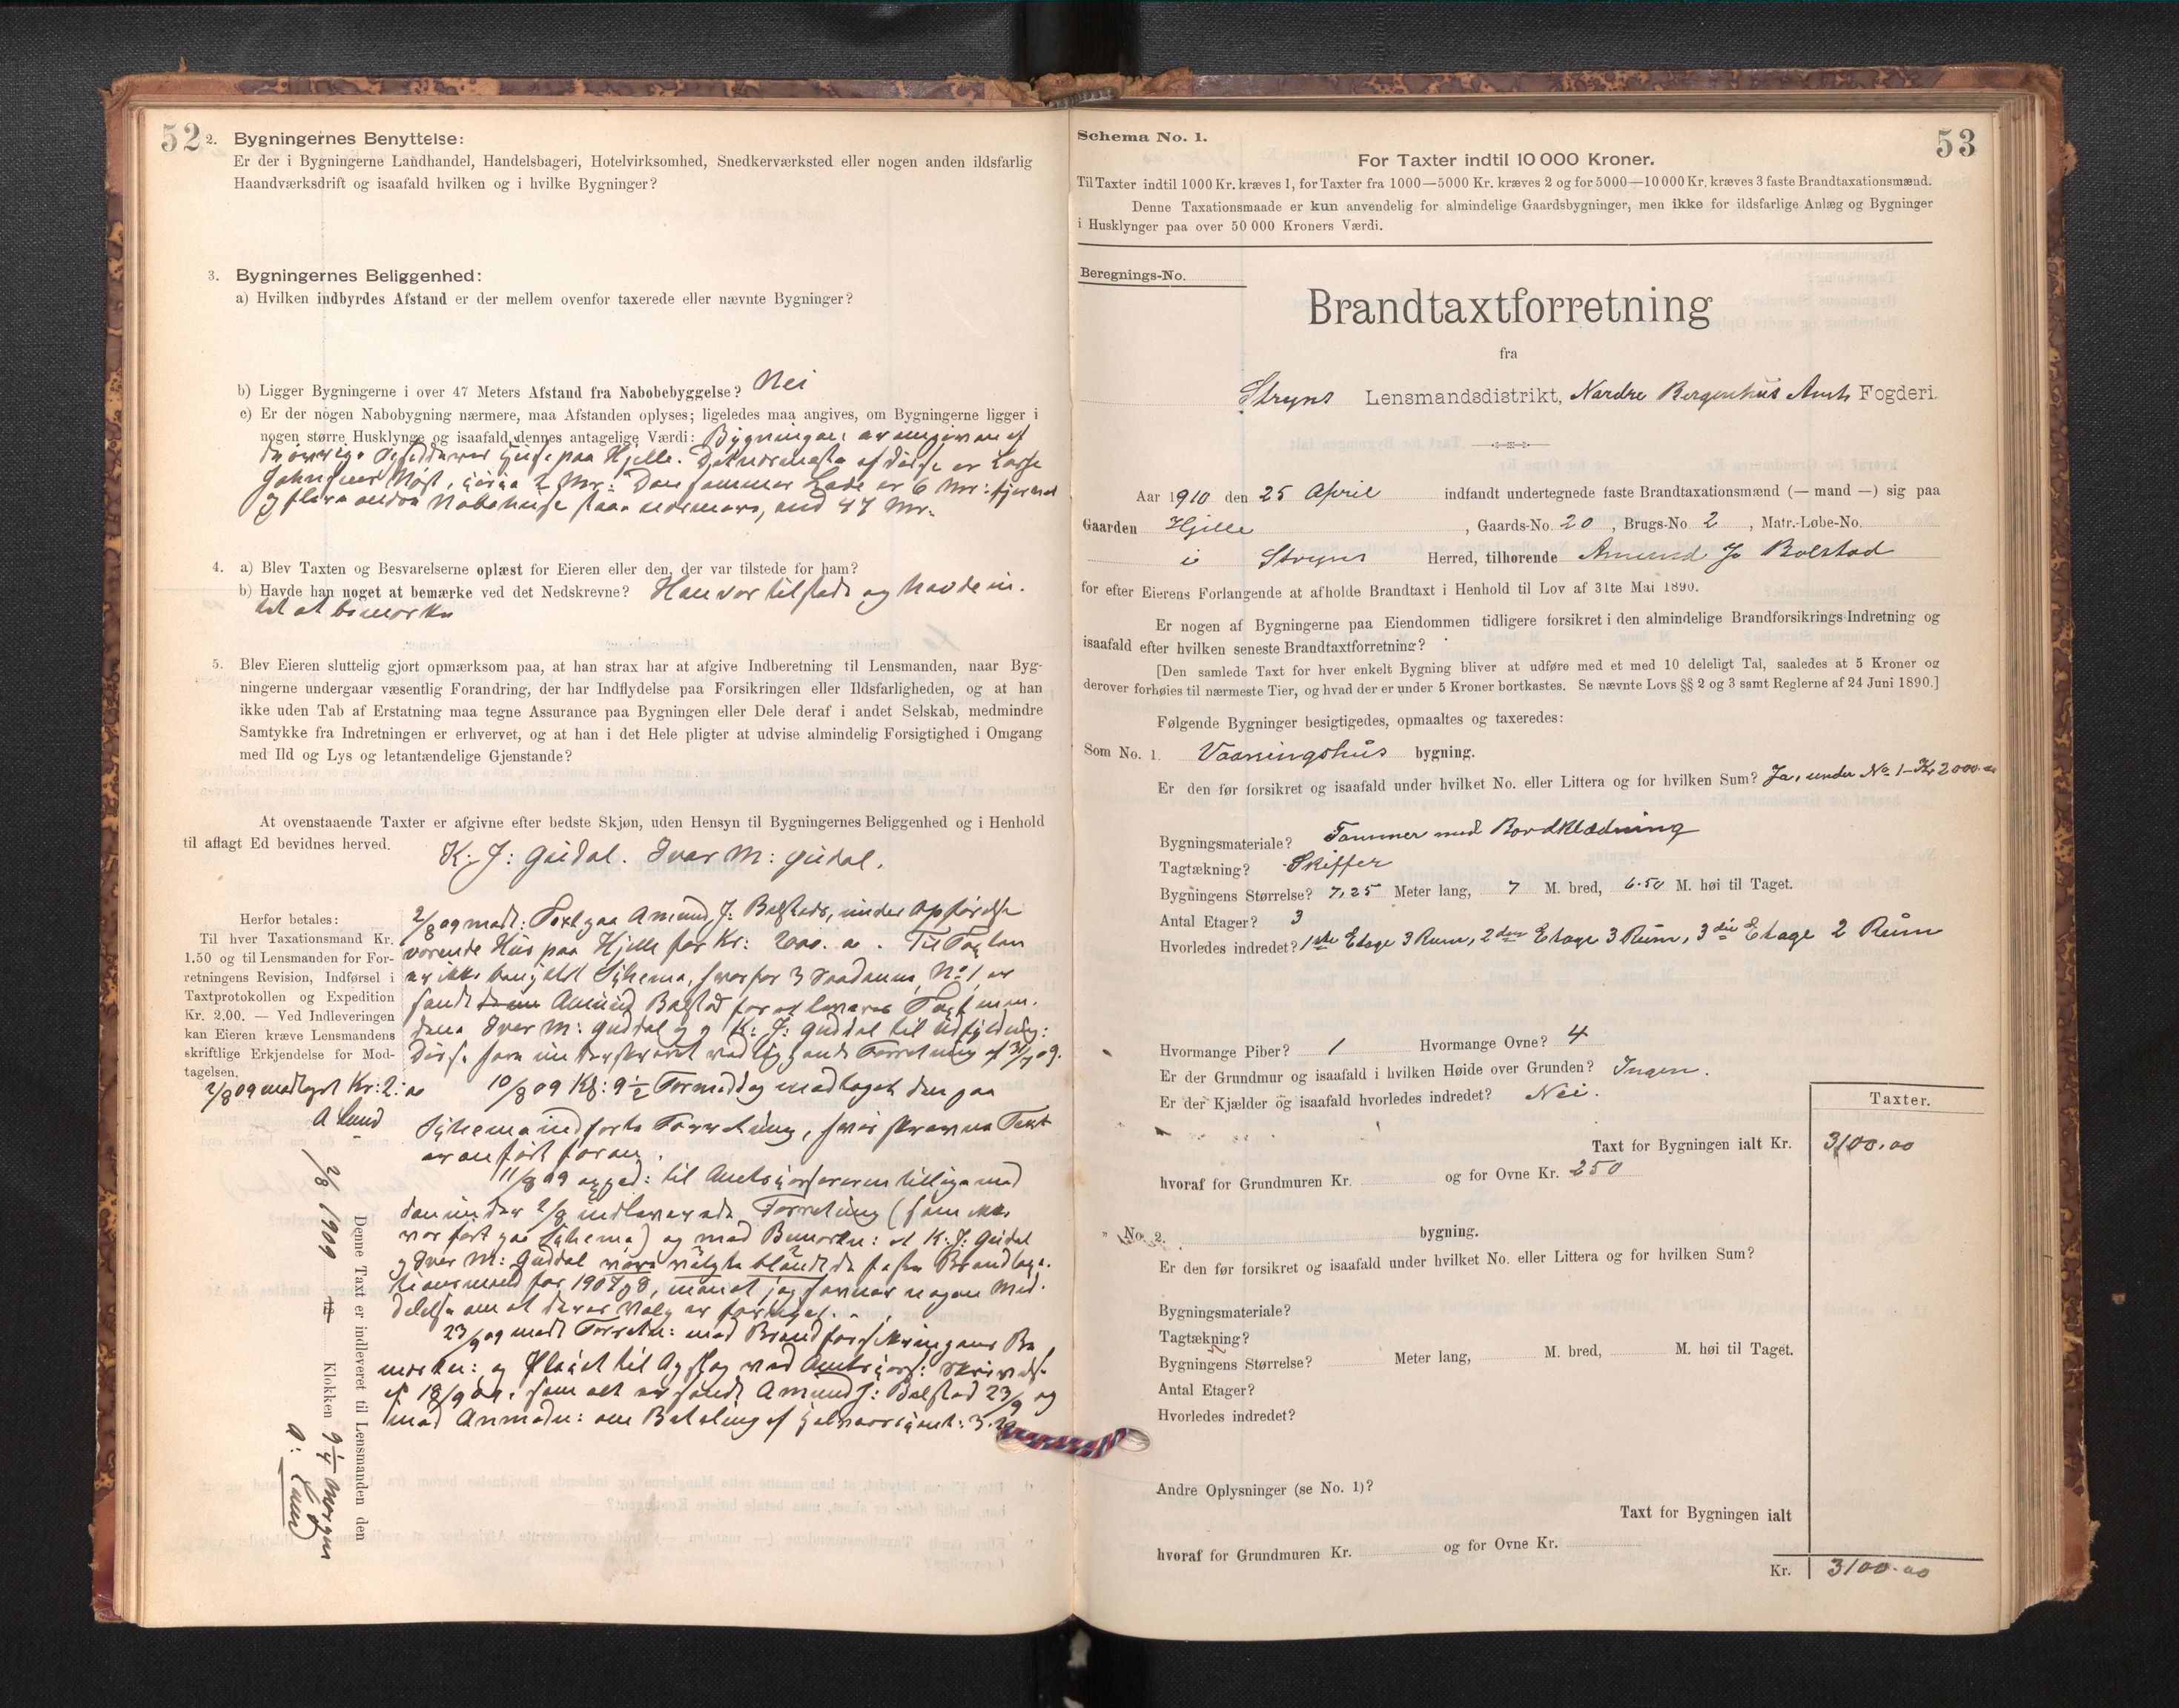 52
2. Bygningernes Benyttelse:
Er der i Bygningerne Landhandel, Handelsbageri, Hotelvirksomhed, Snedkerværksted eller nogen anden ildsfarlig
Haandværksdrift og isaafald hvilken og i hvilke Bygninger?
3. Bygningernes Beliggenhed:
a) Hvilken indbyrdes Afstand er der mellem ovenfor taxerede eller nævnte Bygninger?
b) Ligger Bygningerne i over 47 Meters Afstand fra Nabobebyggelse? Nei
c) Er der nogen Nabobygning nærmere, maa Afstanden oplyses; ligeledes maa angives, om Bygningerne ligger i
nogen større Husklynge og isaafald dennes antagelige Værdi: Bygningen er omgiven af
de øvrige Huse paa Hjelle. Det nærmeste af disse er Lasse
Johnsens Nøst, circa 2 Mr: Den sammes Lade er 6 Mr: fjernet
og flere andre Nabohuse staar nærmere, end 47 Mr.
4. a) Blev Taxten og Besvarelserne oplæst for Eieren eller den, der var tilstede for ham?
b) Havde han noget at bemærke ved det Nedskrevne? Han var tilstede og havde in-
tet at bemærke
5. Blev Eieren sluttelig gjort opmærksom paa, at han strax har at afgive Indberetning til Lensmanden, naar Byg-
ningerne undergaar væsentlig Forandring, der har Indflydelse paa Forsikringen eller Ildsfarligheden, og at han
ikke uden Tab af Erstatning maa tegne Assurance paa Bygningen eller Dele deraf i andet Selskab, medmindre
Samtykke fra Indretningen er erhvervet, og at han i det Hele pligter at udvise almindelig Forsigtighed i Omgang
med Ild og Lys og letantændelige Gjenstande?
At ovenstaaende Taxter er afgivne efter bedste Skjøn, uden Hensyn til Bygningernes Beliggenhed og i Henhold
til aflagt Ed bevidnes herved.
K. J: Guddal. Iver M: Guddal.
Herfor betales:
Til hver Taxationsmand Kr.
1,50 og til Lensmanden for For-
retningens Revision, Indførsel i
Taxtprotokollen og Expedition
Kr. 2,00. — Ved Indleveringen
kan Eieren kræve Lensmandens
skriftlige Erkjendelse for Mod-
tagelsen.
2/8 09 modtaget Kr: 2: 00
A Lund
2/8 09 modt: Taxt paa Amund J: Bolstads, under Opførelse
værende Hus paa Hjelle for Kr: 2000. 00. Til Taxten
er ikke benyttet Schema, hvorfor 3 saadanne, No 1, er
sendt Amund Bolstad for at leveres Taxtmæn-
dene Iver M: Guddal og K: J: Guddal til Udfyldning:
Disse have underskrevet vedliggende Forretning af 31/7 09.
10/8 09 Kl: 9 1/2 Formiddag modtaget den paa
Schema indførte Forretning, hvis skrevne Taxt
er anført foran.
11/8 09 exped: til Amtscassereren tilligemed
den under 2/8 indleverede Forretning (som ikke
var ført paa Schema) og med Bemærkn: at K. J: Guddal
og Iver M: Guddal vare valgte blandt de faste Brandtaxa-
tionsmænd for 1907 og 8, men at jeg savner nogen Med-
delelse om at deres Valg er fornyet.
23/9 09 modt Forretn: med Brandforsikringens Be-
mærkn: og Plaict til Opslag ved Amtscass: Skrivelse
af 18/9 09. som alt er sendt Amund J: Bolstad 23/9 og
med Anmodn: om Betaling af
Denne Taxt er indleveret til Lensmanden den
2/8 1909 Klokken 9 1/4 Morgen
A: Lund
53
Schema No. 1.
For Taxter indtil 10 000 Kroner.
Til Taxter indtil 1000 Kr. kræves 1, for Taxter fra 1000—5000 Kr. kræves 2 og for 5000—10 000 Kr. kræves 3 faste Brandtaxationsmænd.
Denne Taxationsmaade er kun anvendelig for almindelige Gaardsbygninger, men ikke for ildsfarlige Anlæg og Bygninger
i Husklynger paa over 50 000 Kroners Værdi.
Beregnings-No.
Brandtaxtforretning
fra
Stryns Lensmandsdistrikt, Nordre Bergenhus Amts Fogderi.
Aar 1910 den 25 April indfandt undertegnede faste Brandtaxationsmænd (— mand —) sig paa
Gaarden Hjelle, Gaards-No. 20, Brugs-No. 2, Matr.-Løbe-No.
i Stryns Herred, tilhørende Amund Js Bolstad
for efter Eierens Forlangende at afholde Brandtaxt i Henhold til Lov af 31te Mai 1890.
Er nogen af Bygningerne paa Eiendommen tidligere forsikret i den almindelige Brandforsikrings-Indretning og
isaafald efter hvilken seneste Brandtaxtforretning?
[Den samlede Taxt for hver enkelt Bygning bliver at udføre med et med 10 deleligt Tal, saaledes at 5 Kroner og
derover forhøies til nærmeste Tier, og hvad der er under 5 Kroner bortkastes. Se nævnte Lovs §§ 2 og 3 samt Reglerne af 24 Juni 1890.]
Følgende Bygninger besigtigedes, opmaaltes og taxeredes:
Som No. 1. Vaaningshus bygning.
Er den før forsikret og isaafald under hvilket No. eller Littera og for hvilken Sum? Ja, under No. 1 – Kr 2000.00
Bygningsmateriale? Tømmer med Bordklædning
Tagtækning? Skiffer
Bygningens Størrelse? 7,25 Meter lang, 7 M. bred, 6.50 M. høi til Taget.
Antal Etager? 3
Hvorledes indredet? 1ste Etage 3 Rum, 2den Etage 3 Rum, 3die Etage 2 Rum
Hvormange Piber? 1 Hvormange Ovne? 4
Er der Grundmur og isaafald i hvilken Høide over Grunden? Ingen.
Er der Kjælder og isaafald hvorledes indredet? Nei.
Taxter.
Taxt for Bygningen ialt Kr. 3100.00
hvoraf for Grundmuren Kr. og for Ovne Kr. 250
" No. 2. bygning.
Er den før forsikret og isaafald under hvilket No. eller Littera og for hvilken Sum?
Bygningsmateriale?
Tagtækning?
Bygningens Størrelse? Meter lang, M. bred, M. høi til Taget.
Antal Etager?
Hvorledes indredet?
Andre Oplysninger (se No. 1)?
Taxt for Bygningen ialt
hvoraf for Grundmuren Kr. og for Ovne Kr.
Kr. 3100.00